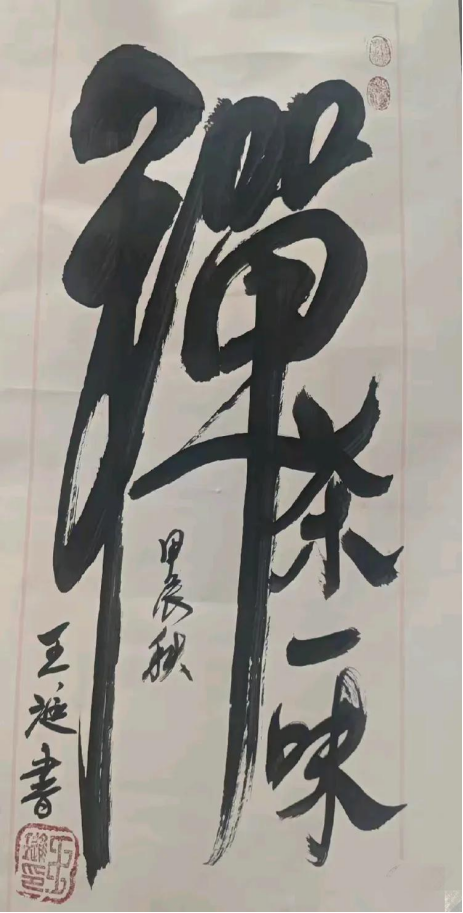 禪
茶一味
甲辰秋
王延書